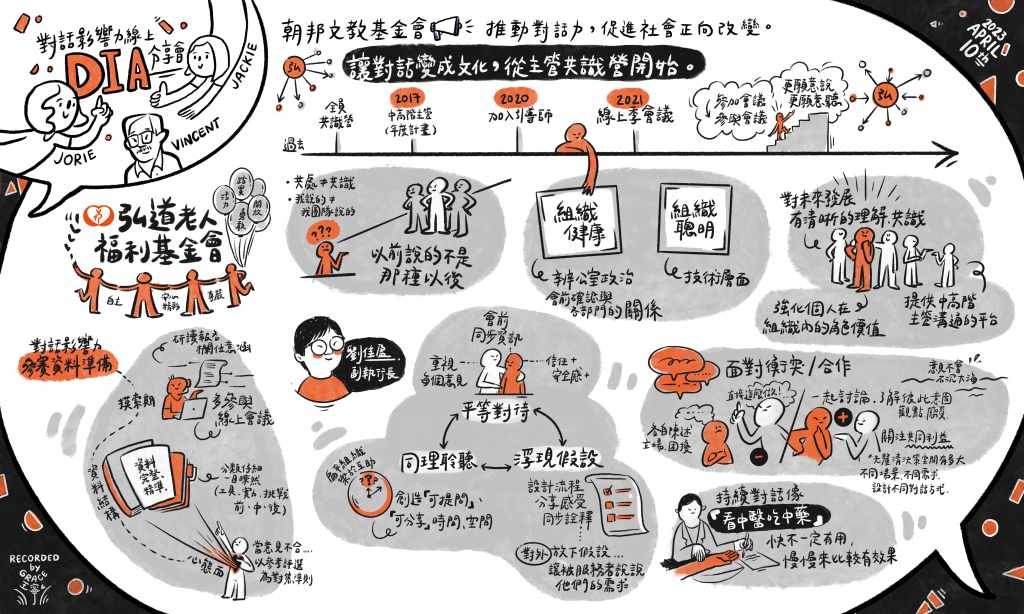 對話影響力線上
分享會
DIA
JACKIE
JORIE
VINCENT
朝邦文教基金會
推動對話力，促進社會正向改變。
2023
APRIL
10th
讓對話變成文化，從主管共識營開始。
弘
過去
全員
共識營
2017
中高階主管
（年度計畫）
2020
加入引導師
2021
線上季會議
參加會議
參與會議
更願意說
更願意聽
弘
弘道老人
福利基金會
踏實
活力
勇敢
開放
自主
精彩
尊嚴
・共處≠共識
・我說的≠
我團隊說的
???
以前說的不是
那種以後
組織
健康
辦公室政治
會前確認與
各部門的關係
組織
聰明
技術層面
對未來發展
有清晰的理解共識
強化個人在
組織內的角色價值
提供中高階
主管溝通的平台
對話影響力
參賽資料準備
研讀報告
欄位意涵
摸索期
多參與
線上會議
資料結構
資料
完整、
精準。
分類仔細
一目瞭然
前、中、後）
心態面
當意見不合...
以參考評選
為對焦準則
劉佳盈
副執行長
會前
同步資訊
重視
每個意見
信任+
安全感+
平等對待
同理聆聽
浮現假設
???
創造「可提問」、
「可分享」時間、空間
設計流程
分享感受
同步詮釋
對外
放下假設...
讓被服務者說說
他們的需求
面對衝突/合作
意見不會
石沉大海
各自陳述
立場，直接
直接這麼做！
一起討論，了解彼此意圖
觀點、假設
關注共同利益
不同場景、不同需求，
設計不同對話方式。
持續對話像
「看中醫吃中藥」
快不一定有用，
慢慢來比較有效果
RECORDED
by
GRACE